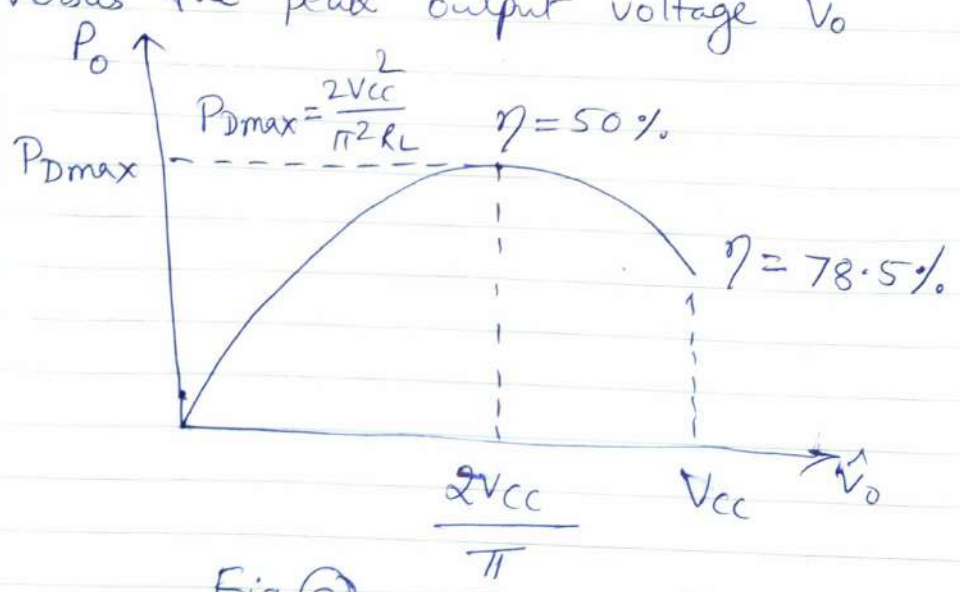 versus the peak output voltage V₀
P₀
P_Dmax = 2Vcc² / π² R_L
η = 50 %.
P_Dmax
η = 78.5 %.
V̂₀
2Vcc / π
Vcc
Fig